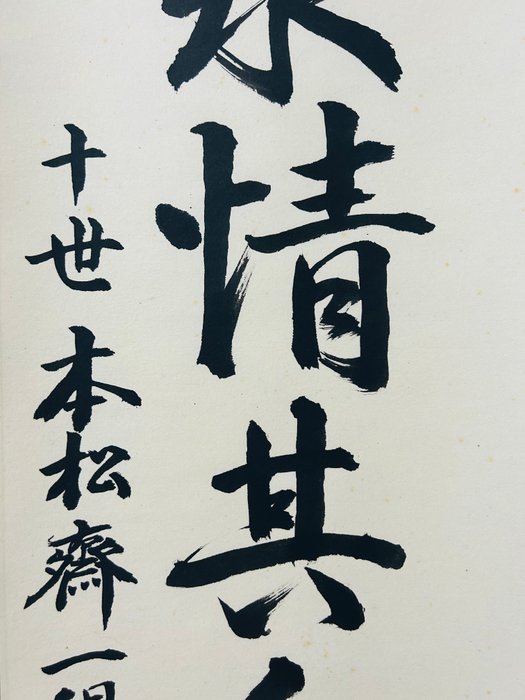 情其
十世 本松齋一